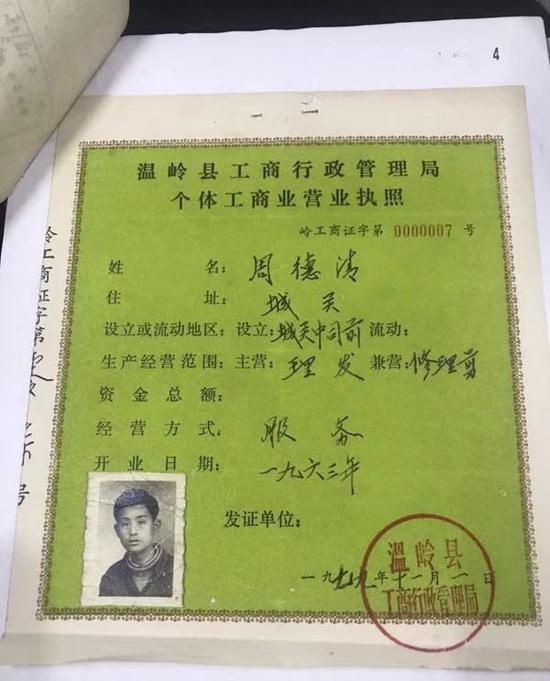 4
温岭县工商行政管理局
个体工商业营业执照
岭工商证字第 0000007 号
姓名：周德清
住址：城关
设立或流动地区：设立：城关中司前 流动：
生产经营范围：主营：理发 兼营：修理剪
资金总额：
经营方式：服务
开业日期：一九六三年
发证单位：
一九七九年十一月一日
温岭县
工商行政管理局
岭工商证字第
号